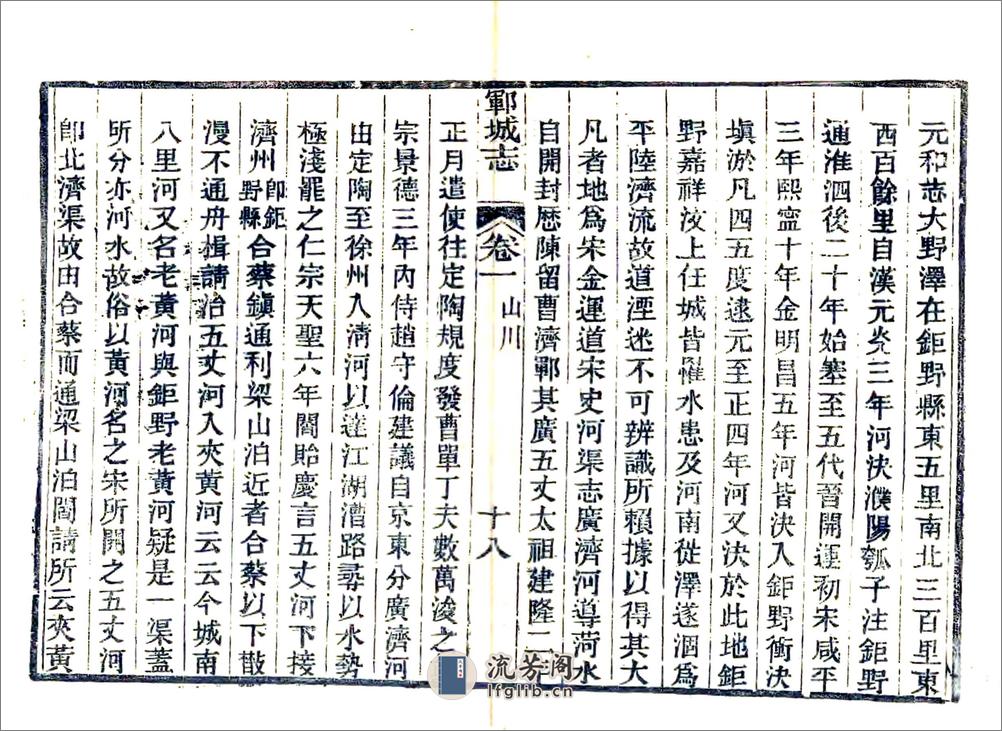 元和志大野澤在鉅野縣東五里南北三百里東
西百餘里自漢元炎三年河決濮陽瓠子注鉅野
通淮泗後二十年始塞至五代晉開運初宋咸平
三年熙寧十年金明昌五年河皆決入鉅野衝決
塡淤凡四五度逮元至正四年河又決於此地鉅
野嘉祥汶上任城皆罹水患及河南從澤遂涸爲
平陸濟流故道湮迷不可辨識所賴據以得其大
凡者地爲宋金運道宋史河渠志廣濟河導菏水
自開封歴陳留曹濟鄆其廣五丈太祖建隆二
鄆城志 卷一 山川 十八
正月遣使往定陶規度發曹單丁夫數萬浚之
宗景德三年內侍趙守倫建議自京東分廣濟河
由定陶至徐州入淸河以達江湖漕路尋以水勢
極淺罷之仁宗天聖六年閻貽慶言五丈河下接
濟州卽鉅野縣合蔡鎭通利梁山泊近者合蔡以下散
漫不通舟楫請治五丈河入夾黃河云云今城南
八里河又名老黃河與鉅野老黃河疑是一渠蓋
所分亦河水故俗以黃河名之宋所開之五丈河
卽北濟渠故由合蔡而通梁山泊閻請所云夾黃
流芳阁
lfglib.cn